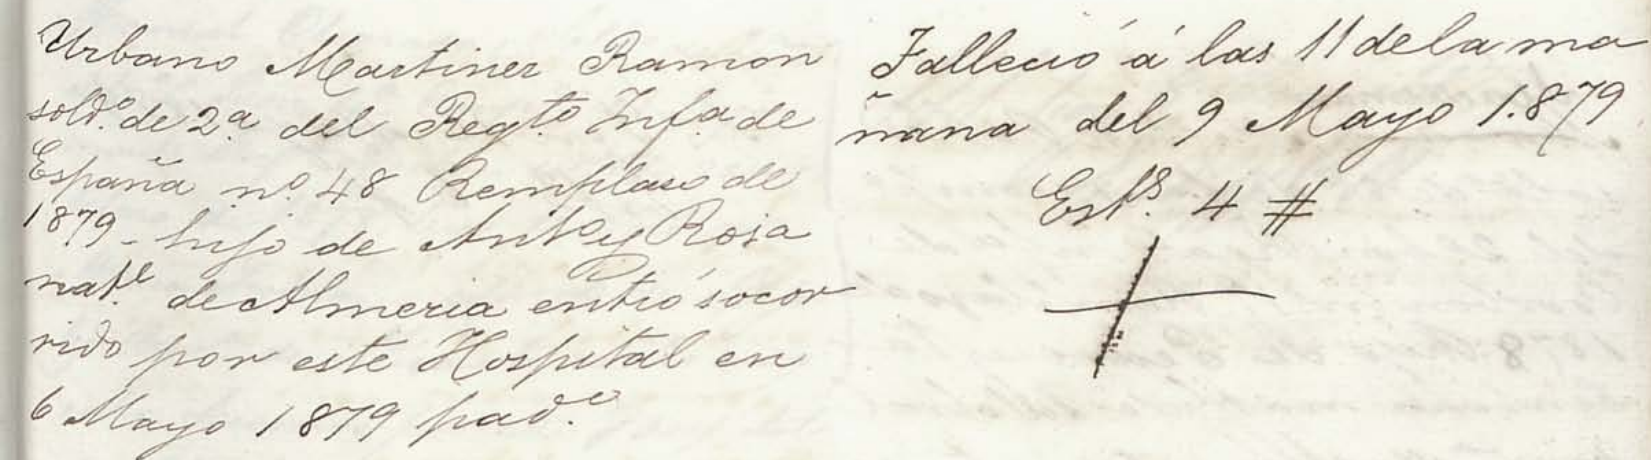 Urbano Martinez Ramon
soldº de 2ª del Regtº Infª de
España nº 48 Remplaso de
1879 - hijo de Antº y Rosa
natˡ de Almeria entró socor
rido por este Hospital en
6 Mayo 1879 padº
Falleció á las 11 de la ma
ñana del 9 Mayo 1.879
Estˢ 4 #